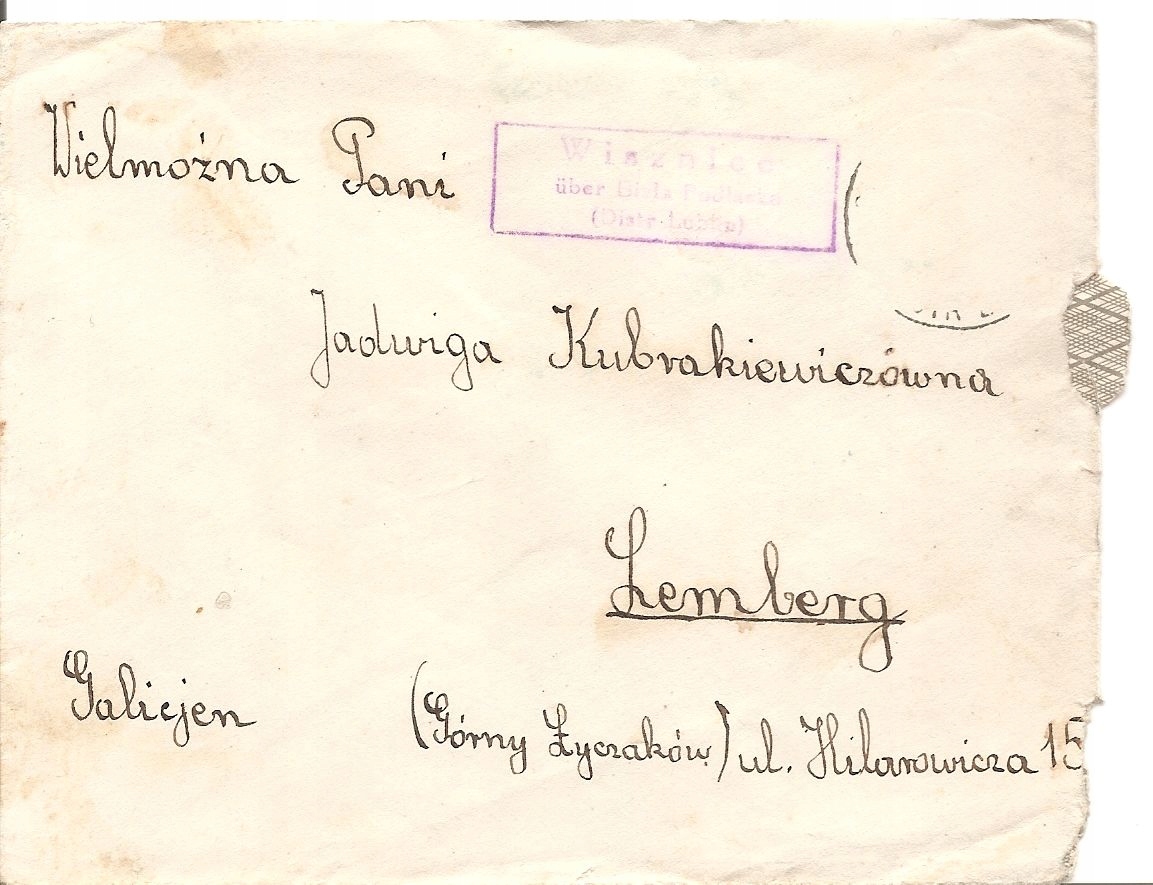 Wielmożna Pani
Wisznice
über Biala Podlaska
(Distr. Lublin)
Jadwiga Kubrakiewiczówna
Lemberg
Galicjen
(Górny Łyczaków) ul. Hilarowicza 15